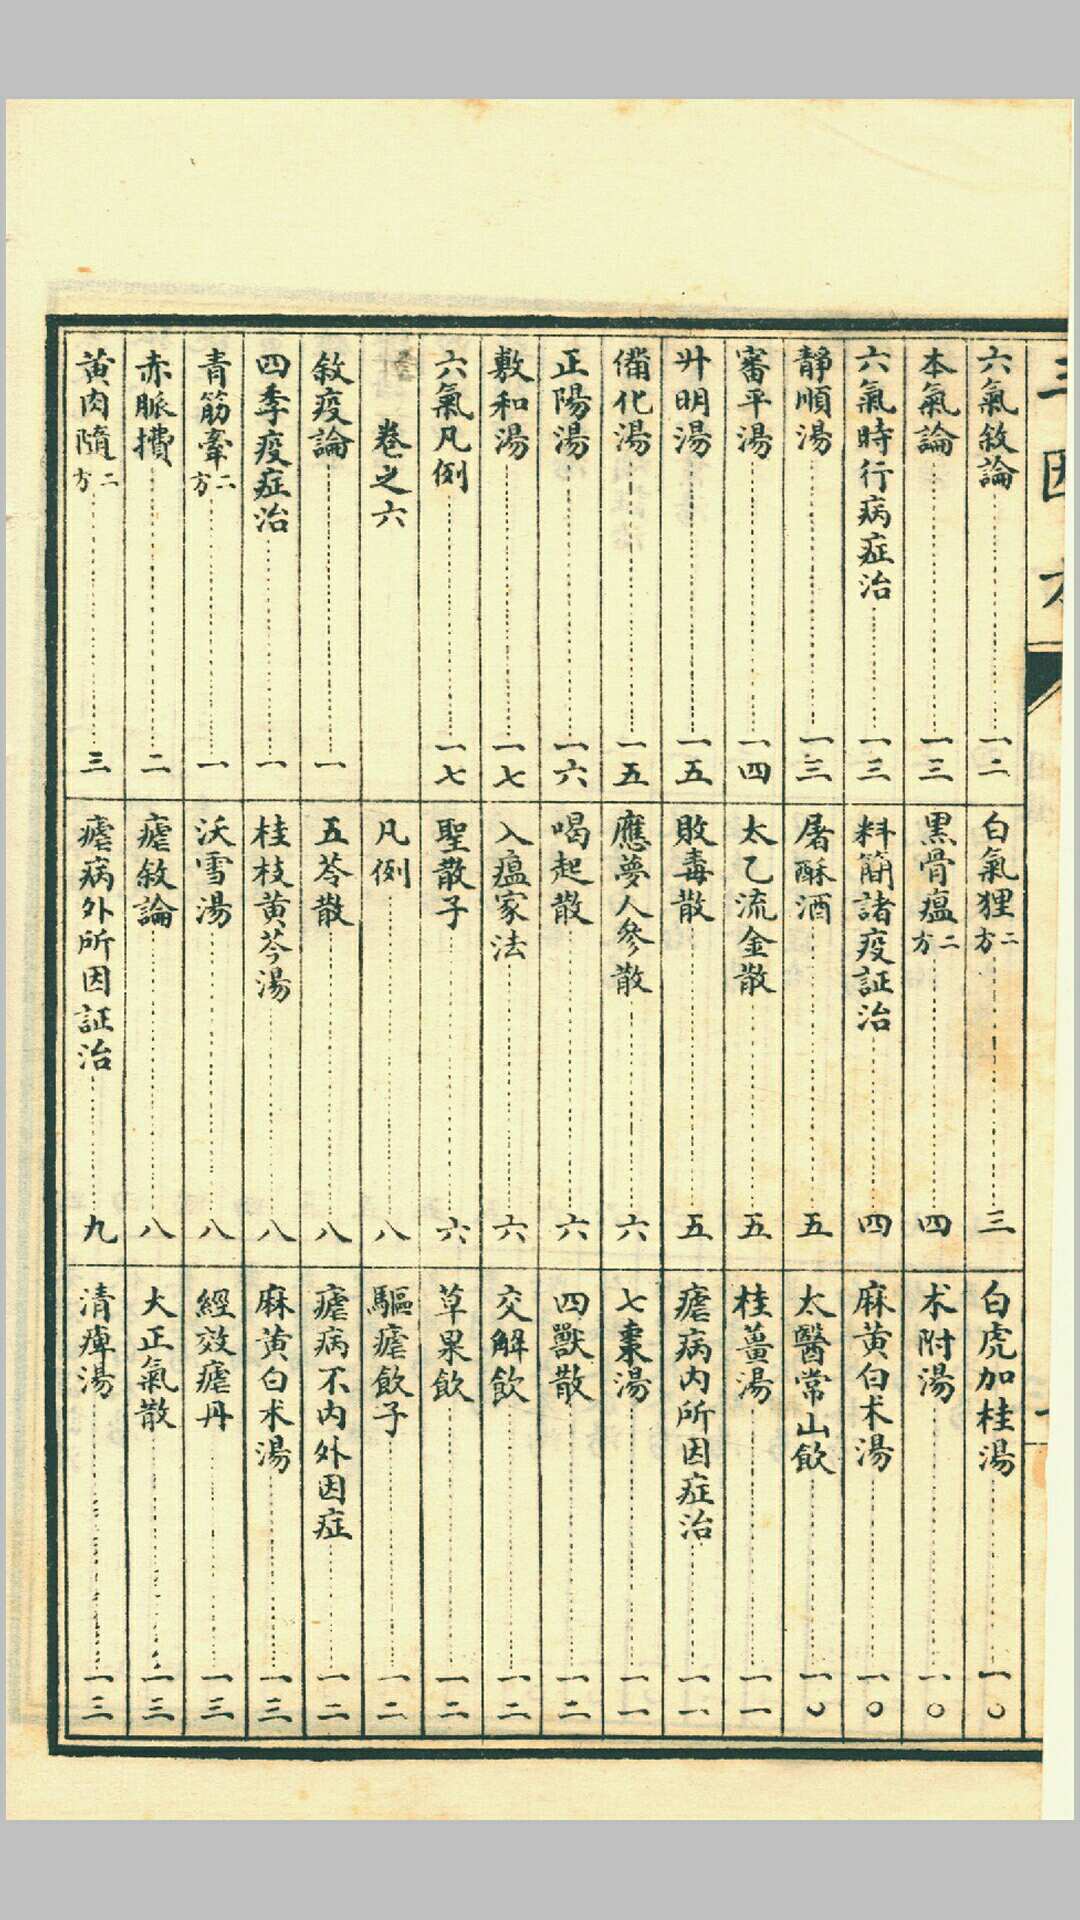 六氣敘論 一二
本氣論 一三
六氣時行病症治 一三
靜順湯 一三
審平湯 一四
廾明湯 一五
備化湯 一五
正陽湯 一六
敷和湯 一七
六氣凡例 一七
卷之六
敘疫論 一
四季疫症治 一
青筋牽二方 一
赤脈攢 二
黃肉隨二方 三
白氣狸二方 三
黑骨瘟二方 四
料簡諸疫証治 四
屠酥酒 五
太乙流金散 五
敗毒散 五
應夢人參散 六
喝起散 六
入瘟家法 六
聖散子 六
凡例 八
五苓散 八
桂枝黃芩湯 八
沃雪湯 八
瘧敘論 八
瘧病外所因証治 九
白虎加桂湯 一〇
术附湯 一〇
麻黃白术湯 一〇
太醫常山飲 一〇
桂薑湯 一一
瘧病內所因症治 一一
七棗湯 一一
四獸散 一二
交解飲 一二
草果飲 一二
驅瘧飲子 一二
瘧病不內外因症 一二
麻黃白术湯 一三
經效瘧丹 一三
大正氣散 一三
清痺湯 一三